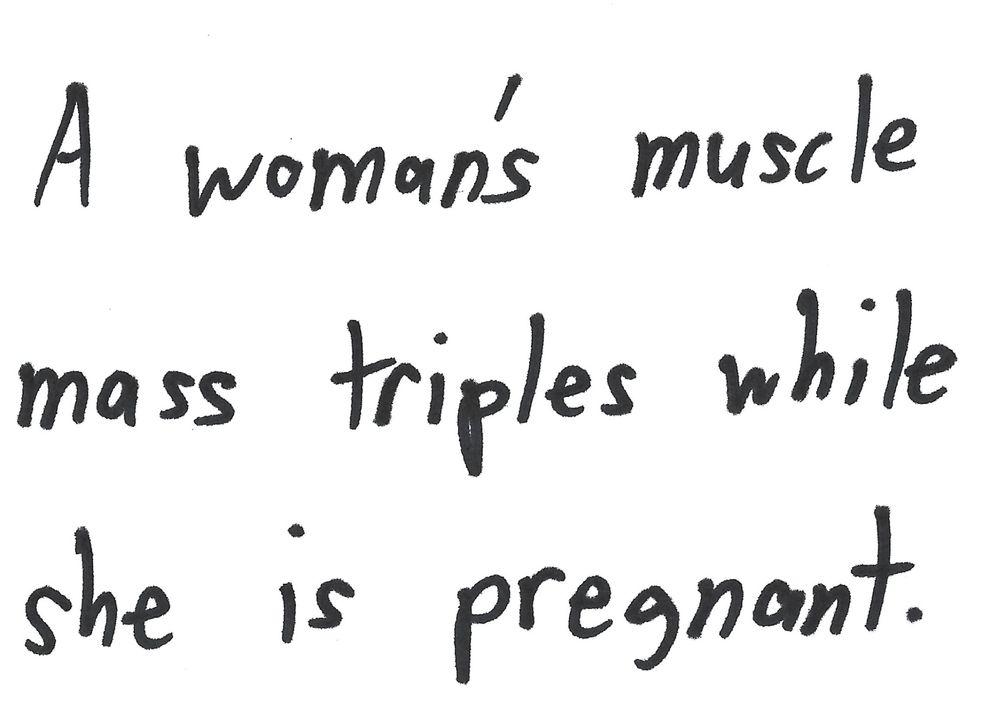 A woman's muscle
mass triples while
she is pregnant.